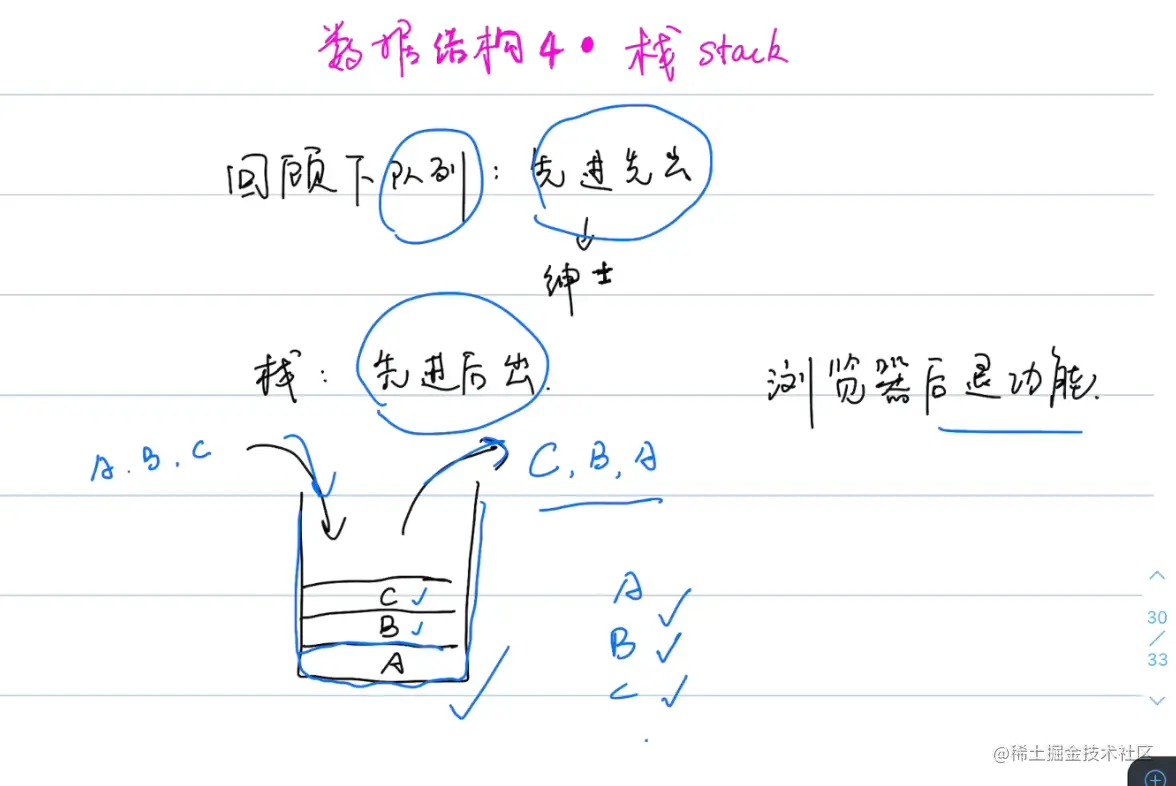 数据结构4·栈stack
回顾下队列：先进先出
绅士
栈：先进后出.
浏览器后退功能.
A.B.C
C,B,A
C
B
A
A
B
C
30
33
@稀土掘金技术社区